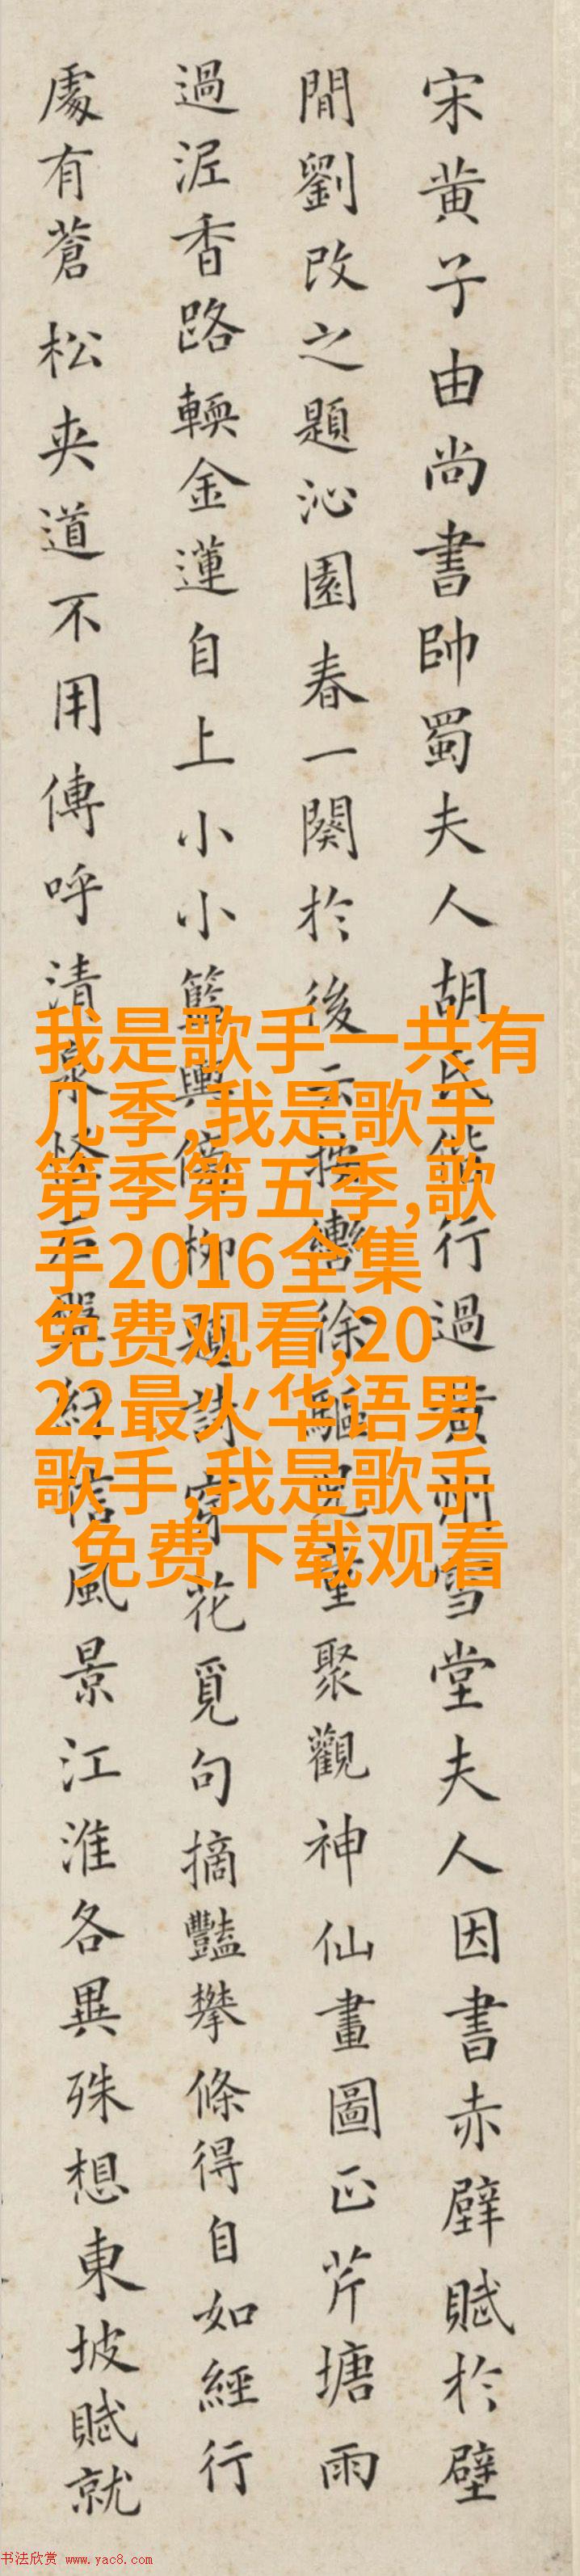 宋黄子由尚書帥蜀夫人胡氏偕行過黄州雪堂夫人因書赤壁賦於壁
間劉改之題沁園春一闋於後云按轡徐驅兒童聚觀神仙畫圖正芹塘雨
過泥香路輭金蓮自上小小籃輿傍柳題詩穿花覓句摘豔攀條得自如經行
處有蒼松夾道不用傳呼清泉怪石盤紆信風景江淮各異殊想東坡賦就
我是歌手一共有
几季,我是歌手
第季第五季,歌
手2016全集
免费观看,20
22最火华语男
歌手,我是歌手
免费下载观看
书法欣赏 www.yac8.com